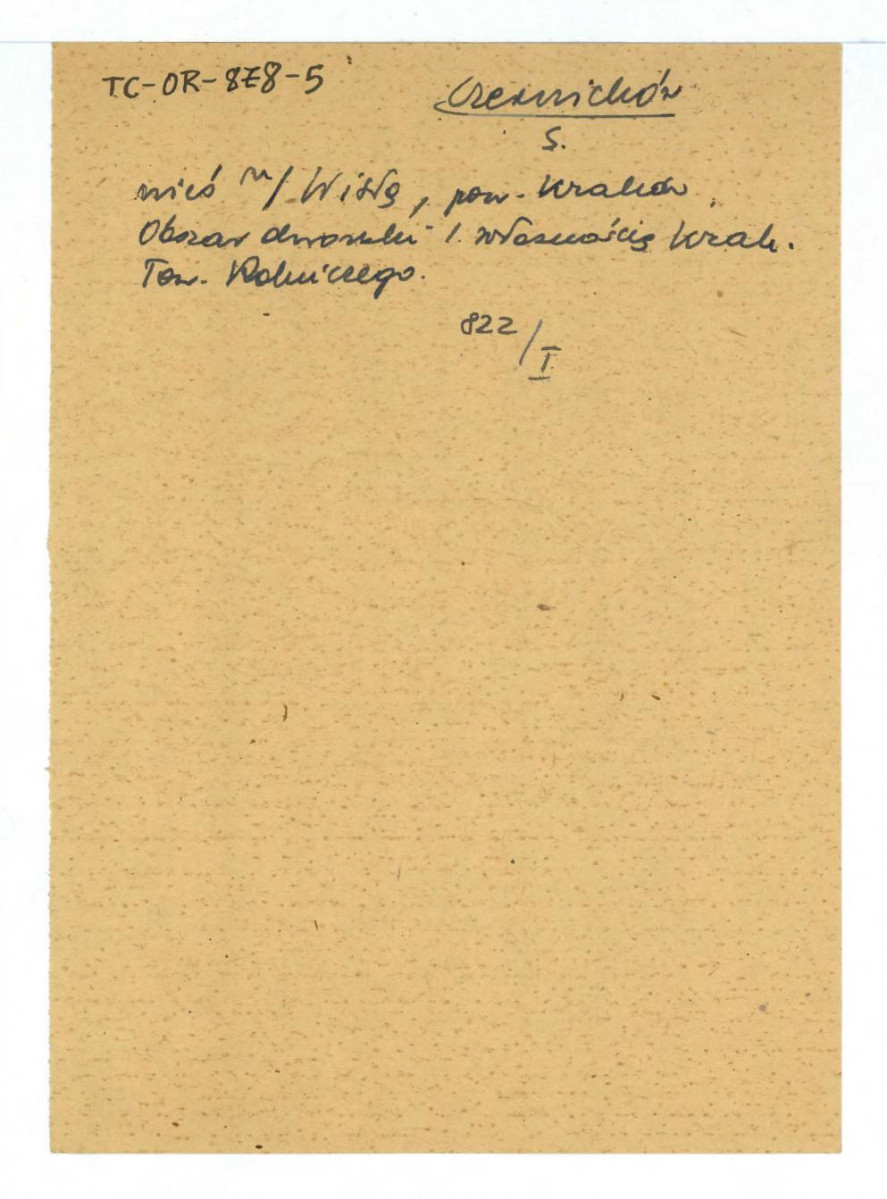 TC-OR-8Z8-5
Czernichów
S.
wieś n/Wisłą, pow. Kraków,
Obszar dworski j. własnością Krak.
Tow. Rolniczego.
822/I